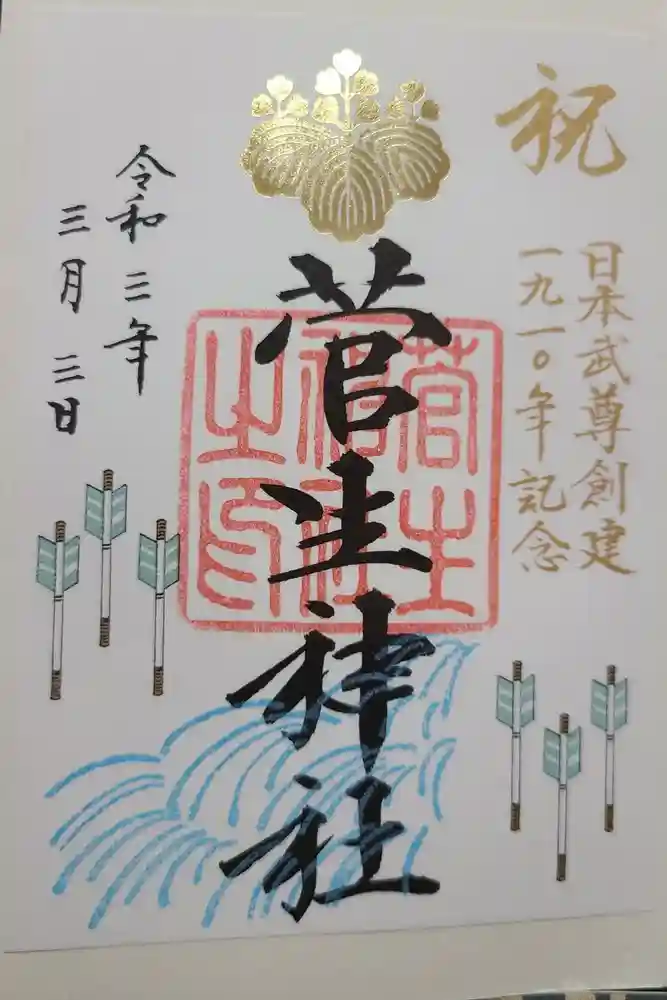 祝
日本武尊創建
一九一〇年記念
菅生神社
菅生神社之印
令和三年
三月三日